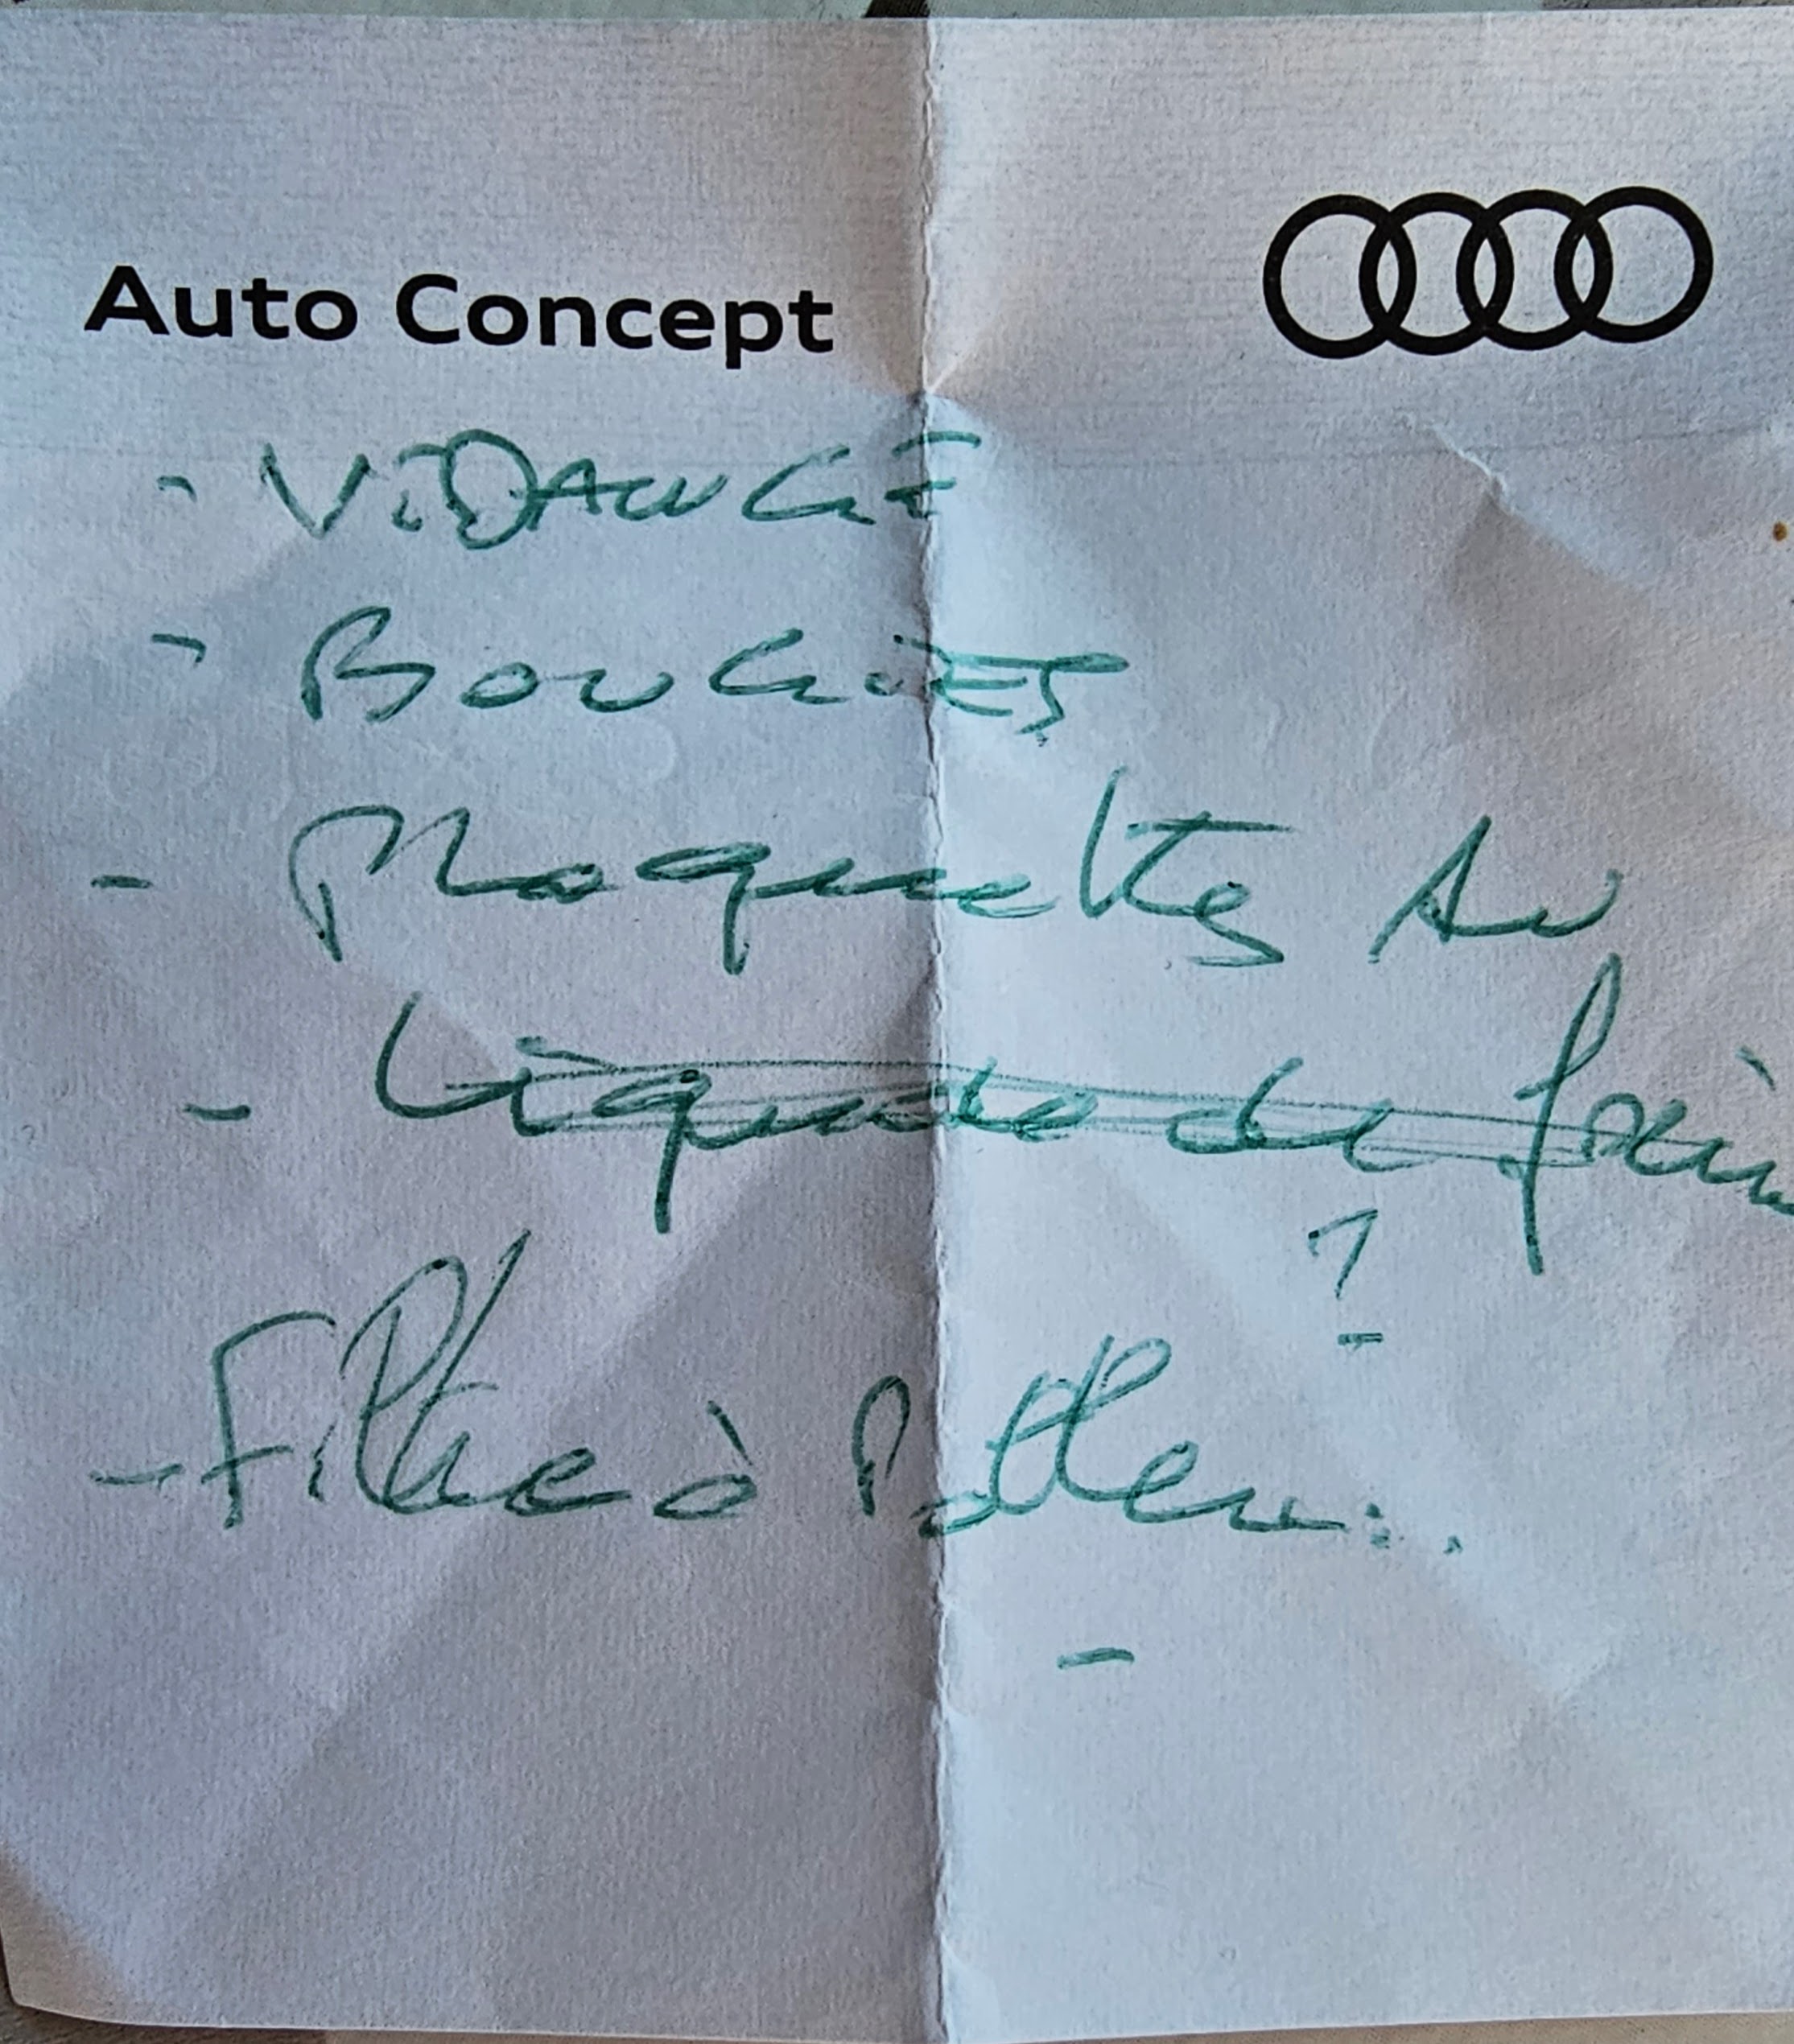 Auto Concept
- ViDANGE
- BOUGiES
- Plaquettes Av
- Liquide de frein
?
- Filtre à Pollen...
-